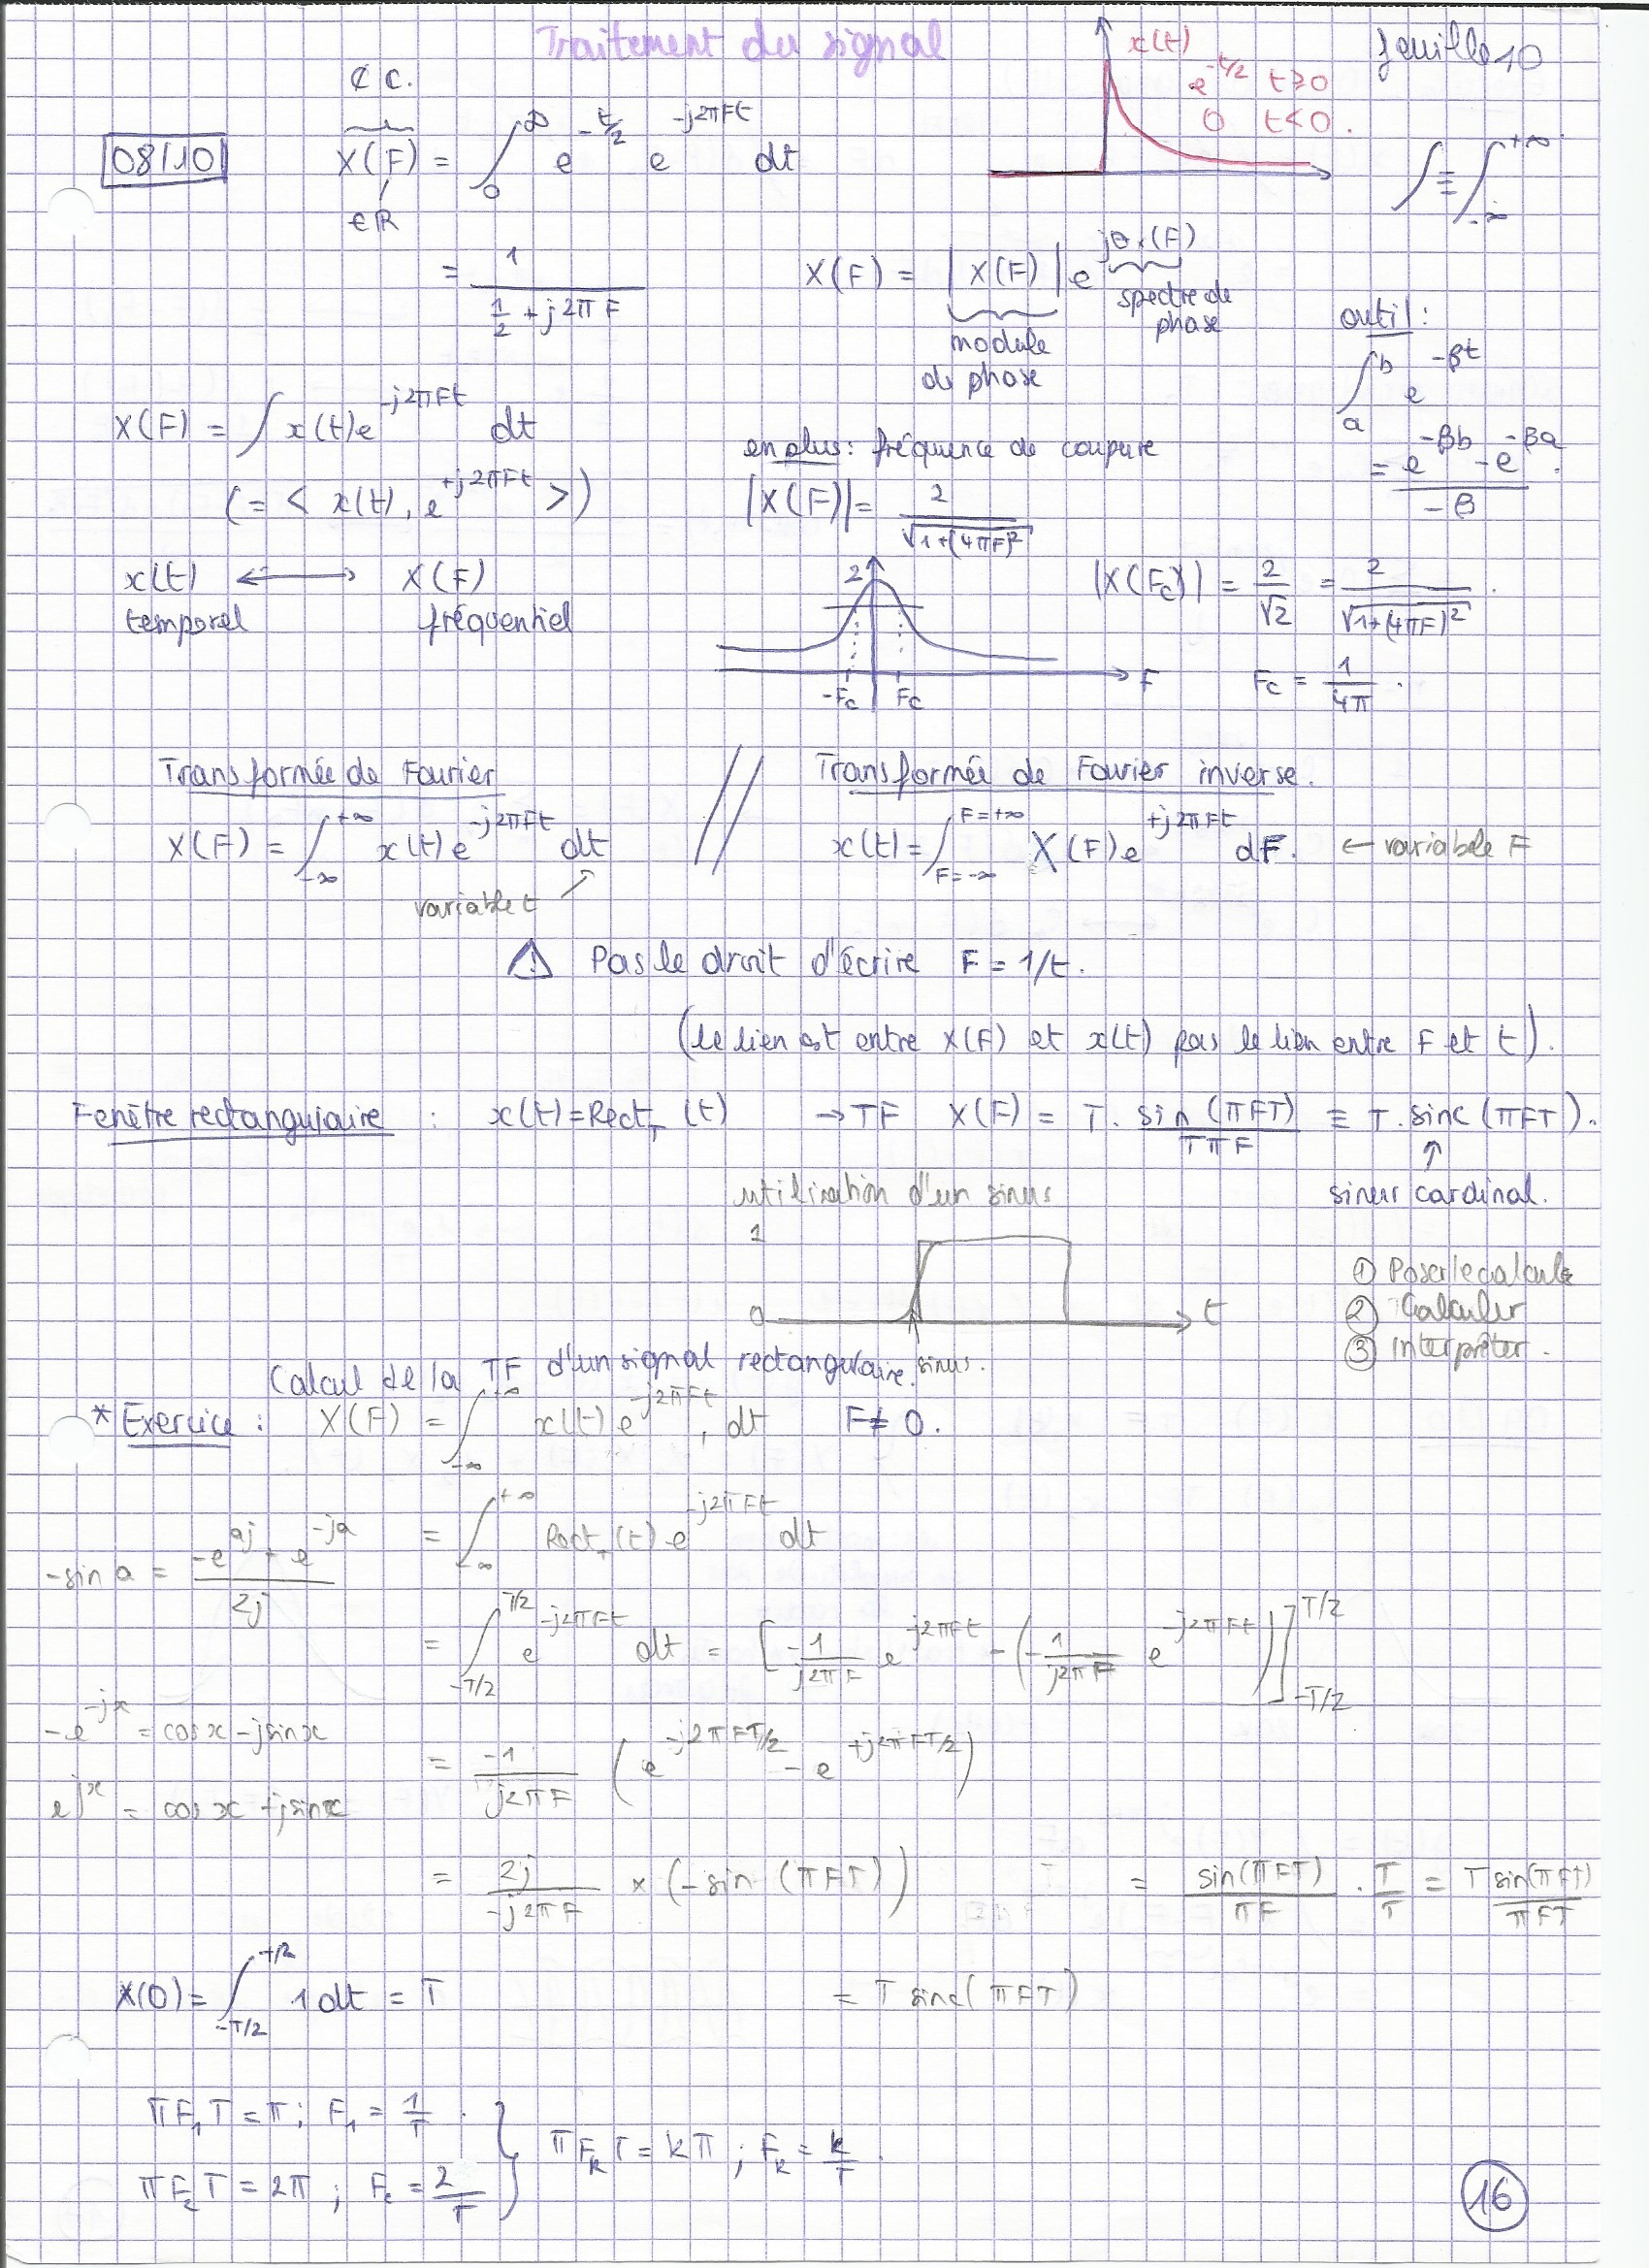 Traitement du signal
feuille 10
¢ C.
08/10
X(F) = ∫₀^∞ e^(-t/2) e^(-j2πFt) dt
∈ℝ
x(t)
e^(-t/2) t≥0
0 t<0.
∫ ≡ ∫_{-∞}^{+∞}
= 1/(1/2 + j2πF)
X(F) = |X(F)| e^(jθx(F))
module de phase
spectre de phase
outil :
∫_a^b e^(-βt)
= (e^(-βb) - e^(-βa))/(-β).
X(F) = ∫ x(t) e^(-j2πFt) dt
(= < x(t), e^(+j2πFt) >)
en plus : fréquence de coupure
|X(F)| = 2/√(1+(4πF)²)
x(t) ⟷ X(F)
temporel fréquentiel
2
-Fc Fc F
|X(Fc)| = 2/√2 = 2/√(1+(4πF)²).
Fc = 1/4π.
Transformée de Fourier // Transformée de Fourier inverse.
X(F) = ∫_{-∞}^{+∞} x(t) e^(-j2πFt) dt
variable t
x(t) = ∫_{F=-∞}^{F=+∞} X(F) e^(+j2πFt) dF. ← variable F
⚠ Pas le droit d'écrire F = 1/t.
(le lien est entre X(F) et x(t) pas le lien entre F et t).
Fenêtre rectangulaire : x(t) = Rect_T (t) → TF X(F) = T. sin (πFT)/(TπF) ≡ T. sinc (πFT).
↑
sinus cardinal.
utilisation d'un sinus
1
0 t
sinus.
① Poser le calcul
② Calculer
③ Interpréter.
Calcul de la TF d'un signal rectangulaire.
* Exercice : X(F) = ∫_{-∞}^{+∞} x(t) e^(-j2πFt), dt F≠0.
= ∫_{-∞}^{+∞} Rect_T (t) e^(-j2πFt) dt
-sin a = (-e^(aj) + e^(-ja))/2j
= ∫_{-T/2}^{T/2} e^(-j2πFt) dt = [-1/(j2πF) e^(-j2πFt) - (-1/(j2πF) e^(-j2πFt))]_{-T/2}^{T/2}
-e^(-jx) = cos x - j sin x
e^(jx) = cos x + j sin x
= -1/(j2πF) (e^(-j2πFT/2) - e^(+j2πFT/2))
= 2j/(-j2πF) × (-sin (πFT)) = sin(πFT)/(πF) . T/T = T sin(πFT)/(πFT)
X(0) = ∫_{-T/2}^{+T/2} 1 dt = T
= T sinc(πFT)
πF₁T = π ; F₁ = 1/T.
πF₂T = 2π ; F₂ = 2/T
} πF_kT = kπ ; F_k = k/T.
16